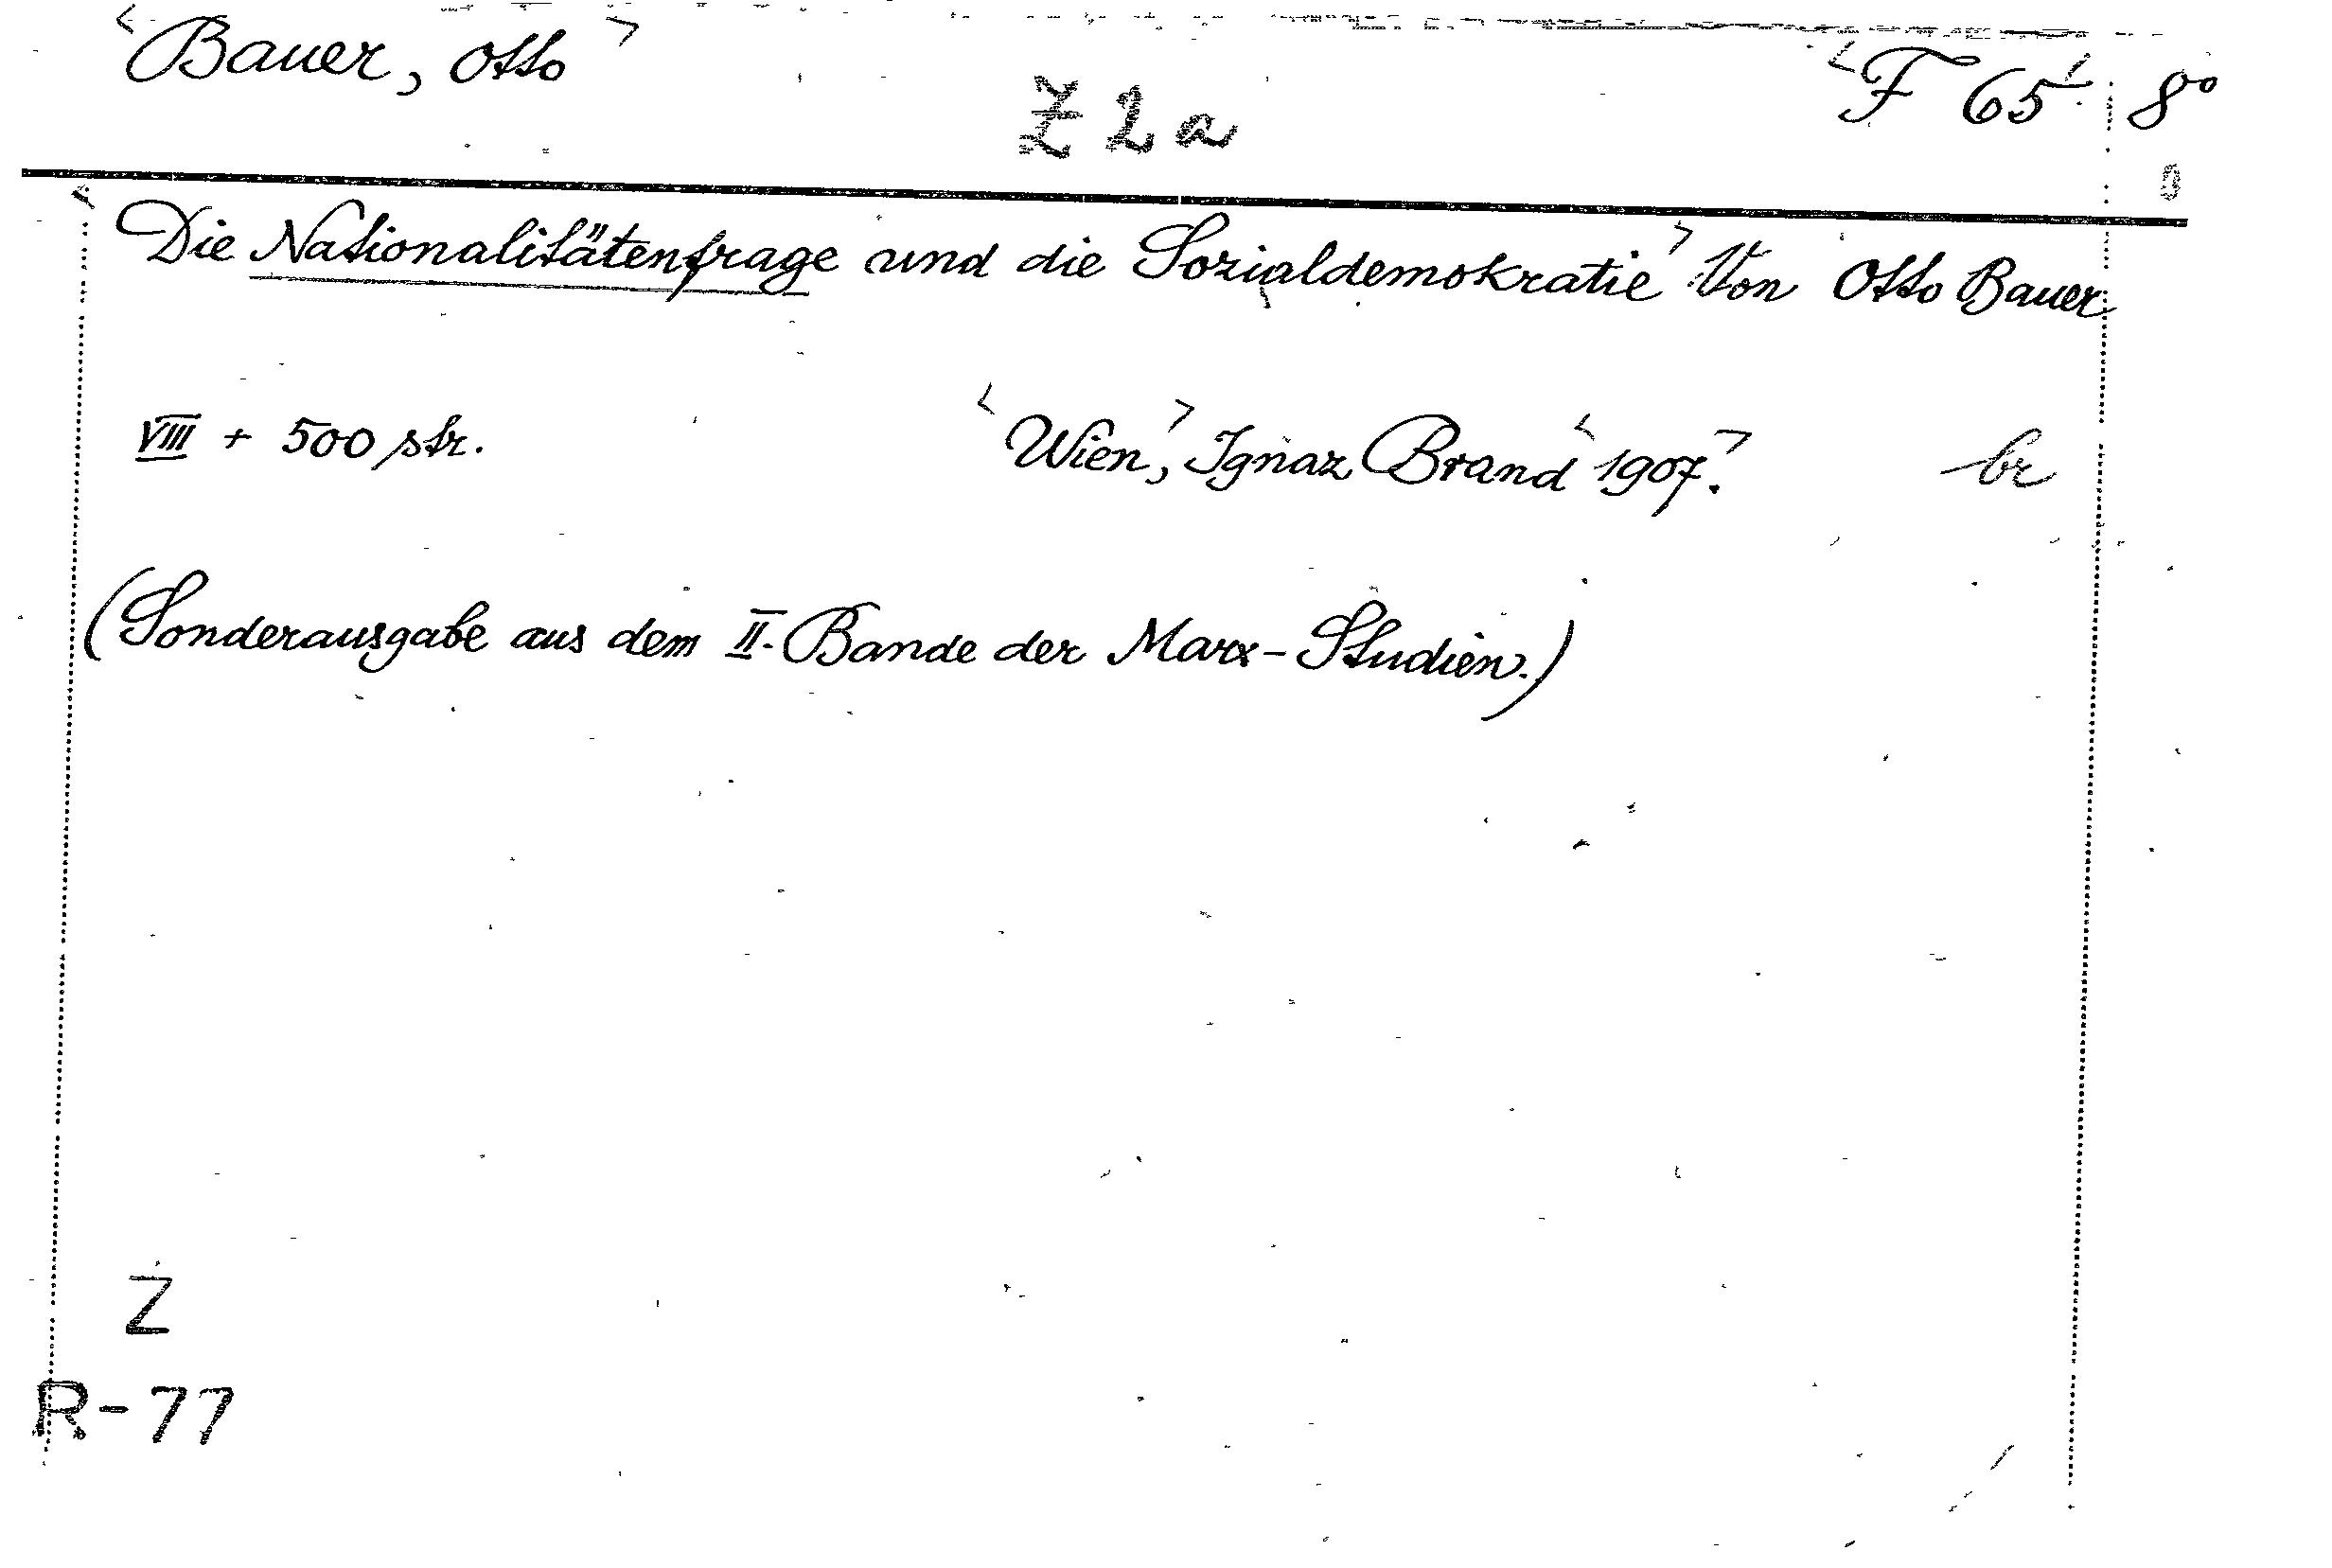 <Bauer, Otto> Z2a <F 65> 8°
<Die Nationalitätenfrage und die Sozialdemokratie> Von Otto Bauer
VIII + 500 str. <Wien,> Ignaz Brand <1907.> br
(Sonderausgabe aus dem II. Bande der Marx-Studien.)
Z
R-77